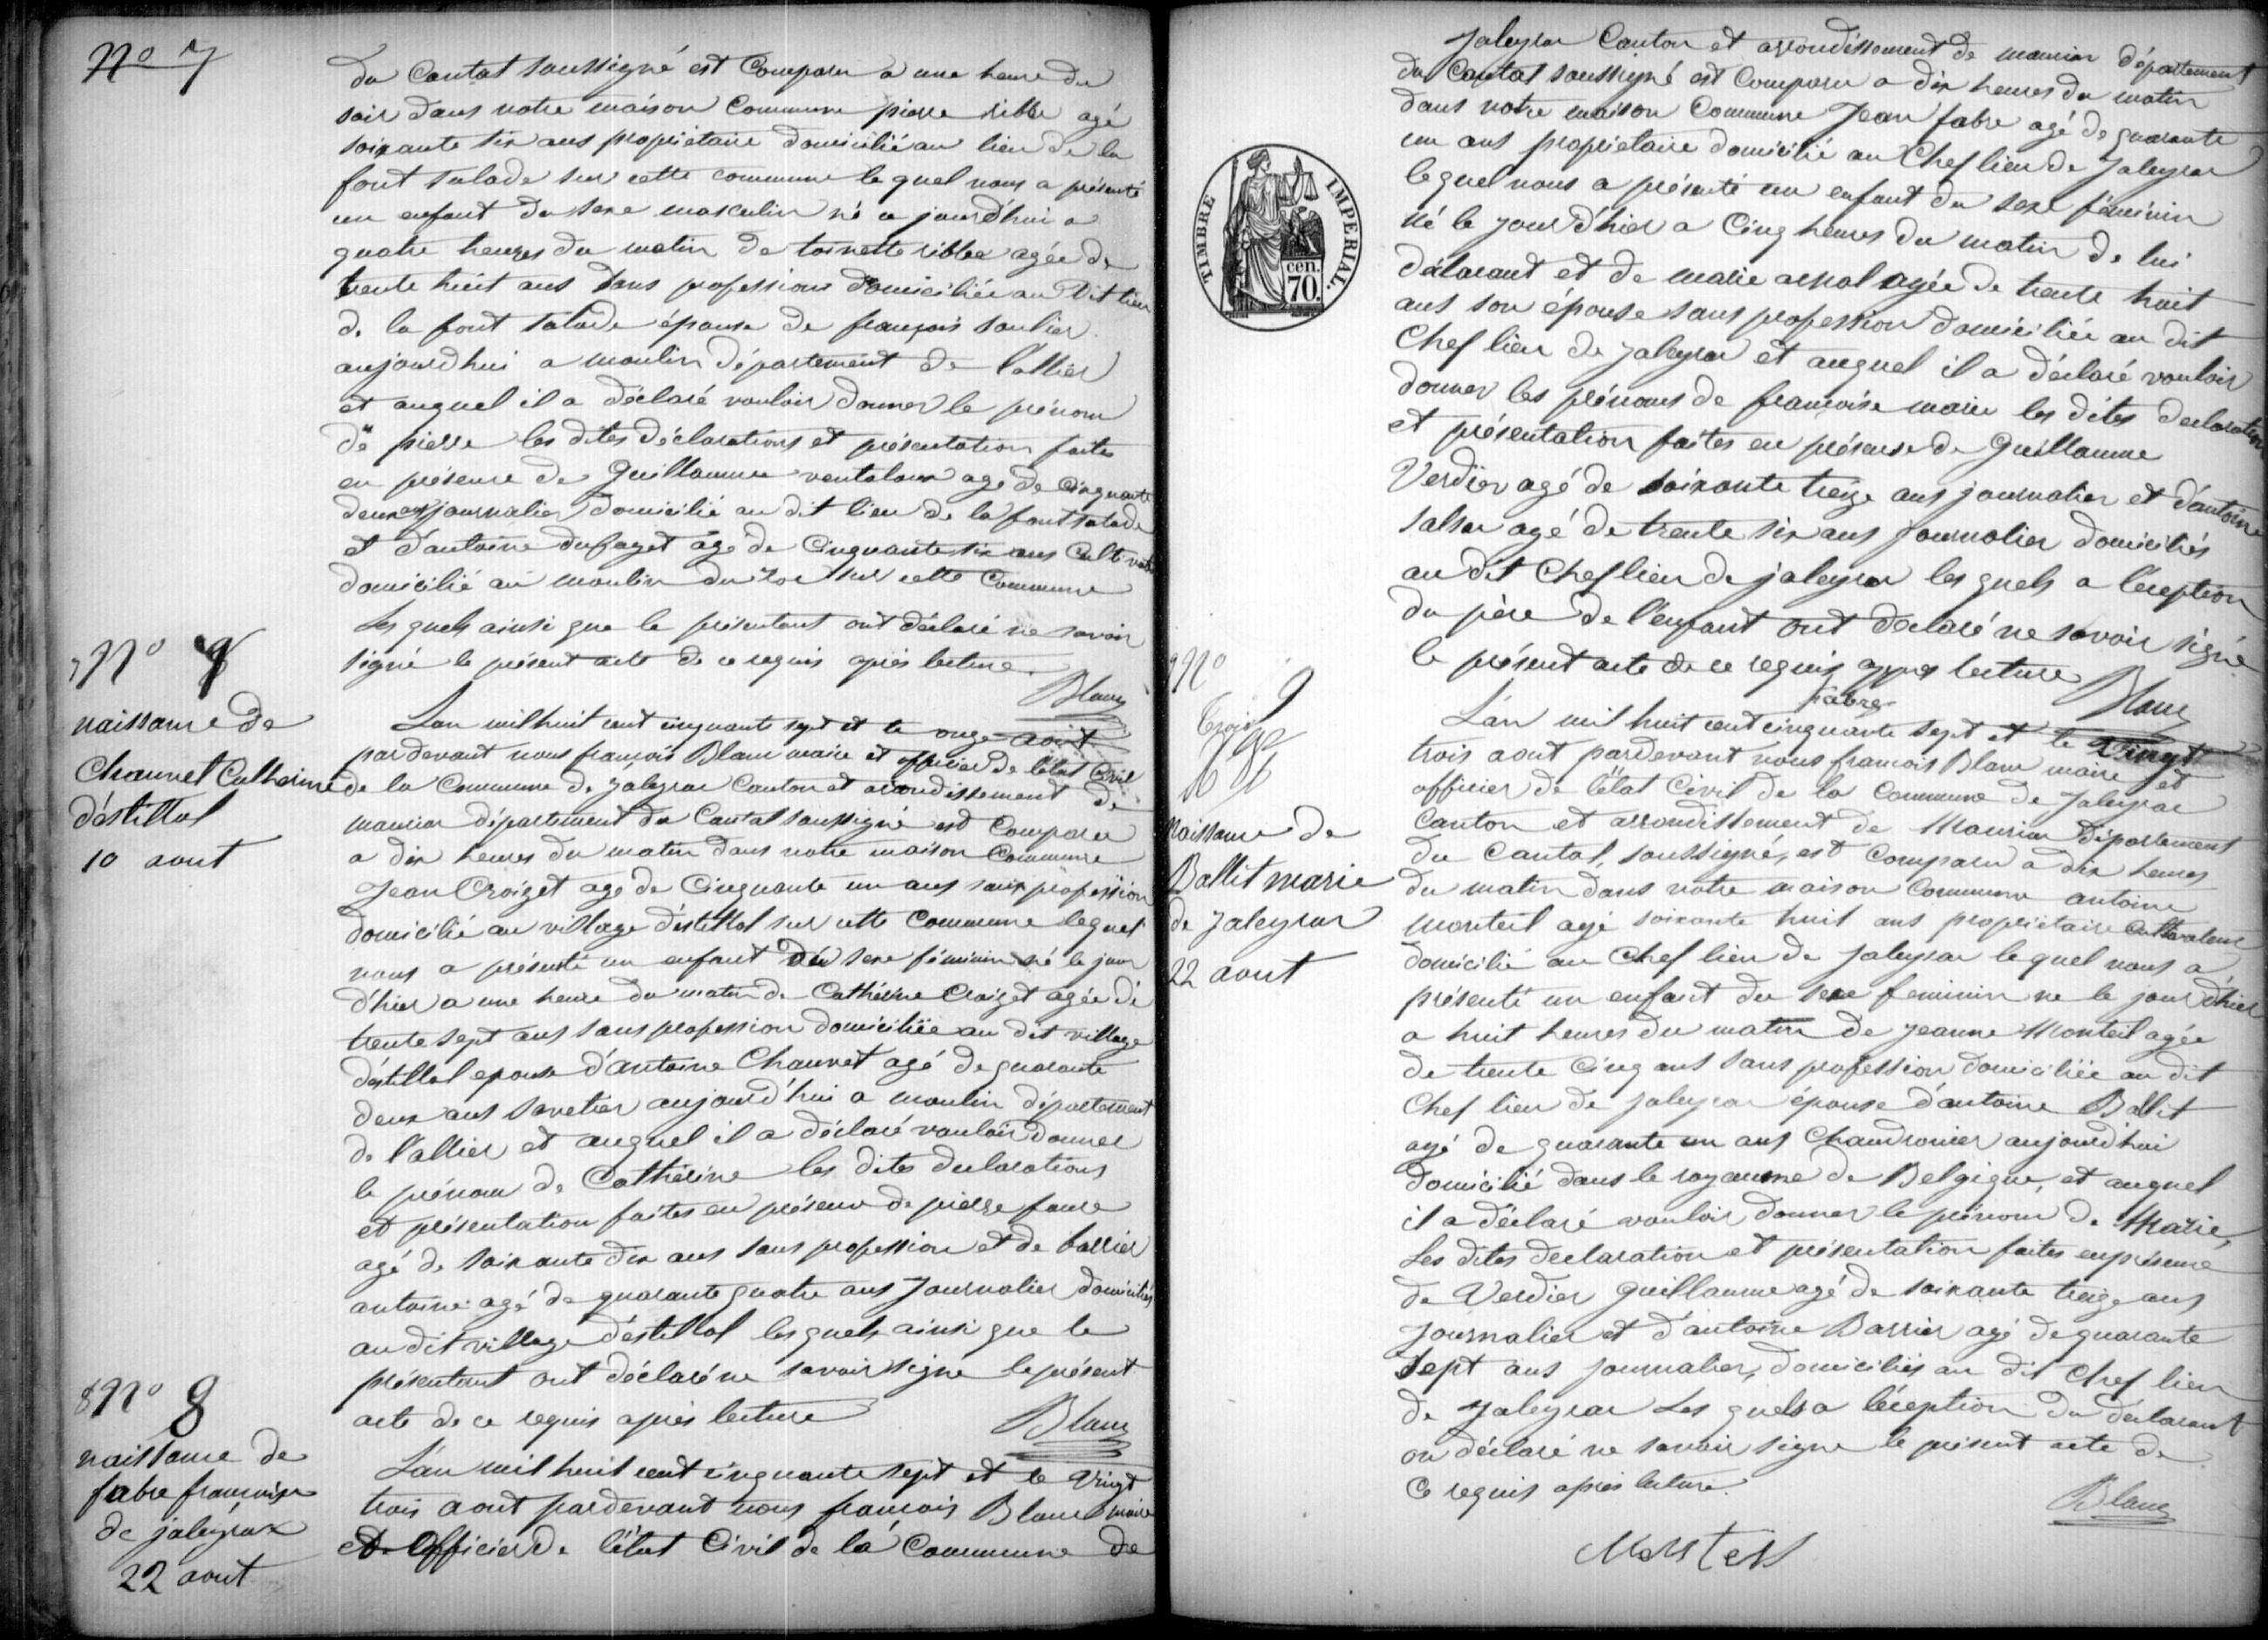 No 7
du Cantal soussigné est Comparu a une heure du
soir dans notre maison Commune pierre ribbe agé
soixante six ans propriétaire domicilié au lieu de la
font salade sur cette commune lequel nous a présenté
un enfant du sexe masculin né ce jourd'hui a
quatre heures du matin de toinette ribbe agée de
trente huit ans sans profession domiciliée au dit lieu
de la font salade épouse de françois soulier
aujourdhui a moulin département de l'allier
et auquel il a déclaré vouloir donner le prénom
de pierre les dites déclarations et présentation faites
en présence de Guillaume ventaloux agé de cinquante
deux ans journalier domicilié au dit lieu de la font salade
et d'antoine dufayet agé de Cinquante six ans Cultivateur
domicilié au moulin du sur cette Commune
Les quels ainsi que le présentant ont déclaré ne savoir
signé le présent acte de ce requis après lecture
Blanc
7 No
naissance de
Chauvet Catherine
d'éstillol
10 aout
Lan mil huit cent cinquante sept et le onze aout
pardevant nous françois Blanc maire et officier de l'état Civil
de la Commune de Jaleyrac Canton et arrondissement de
mauriac département du Cantal soussigné est Comparu
a dix heures du matin dans notre maison Commune
Jean Croizet agé de Cinquante un ans sans profession
domicilié au village d'éstillol sur cette Commune lequel
nous a présenté un enfant du sexe féminin né le jour
d'hier a une heure du matin de Cathérine Croizet agée de
trente sept ans sans profession domiciliée au dit village
d'éstillol epouse d'antoine Chauvet agé de quarante
deux ans savetier aujourd'hui a moulin département
de l'allier et auquel il a déclaré vouloir donner
le prénom de Cathérine les dites declarations
et présentation faites en présence de pierre faure
agé de soixante dix ans sans profession et de barrier
antoine agé de quarante quatre ans Journalier domiciliés
au dit village d'éstillol lesquels ainsi que le
présentant ont déclaré ne savoir signe le présent
acte de ce requis après lecture
Blanc
8 No 8
naissance de
fabre françoise
de jaleyrac
22 aout
L'an mil huit cent cinquante sept et le vingt
trois aout pardevant nous francois Blanc maire
et Officier de l'état Civil de la Commune de
Jaleyrac Canton et arrondissement de mauriac département
du Cantal soussigné est Comparu a dix heures du matin
dans notre maison Commune Jean fabre agé de quarante
un ans propriétaire domicilié au Chef lieu de Jaleyrac
lequel nous a présenté un enfant du sexe féminin
né le jour d'hier a Cinq heures du matin de lui
déclarant et de marie agée de trente huit
ans son épouse sans profession domiciliée au dit
Chef lieu de Jaleyrac et auquel il a déclaré vouloir
donner les prénoms de francoise marie les dites declaration
et présentation faites en présense de Guillaume
Verdier agé de soixante treize ans journalier et d'antoine
agé de trente six ans journalier domiciliés
au dit Chef lieu de jaleyrac les quels a l'éception
du père de l'enfant ont déclaré ne savoir signé
le présent acte de ce requis apres lecture
Fabre
Blanc
TIMBRE IMPERIAL.
cen. 70.
9 No 9
naissance de
Ballit marie
de Jaleyrac
22 aout
L'an mil huit cent cinquante sept et le vingt
trois aout pardevant nous francois Blanc maire et
officier de l'état Civil de la Commune de Jaleyrac
Canton et arrondissement de Mauriac département
du Cantal, soussigné, est Comparu a dix heures
du matin dans notre maison Commune antoine
monteil agé soixante huit ans propriétaire Cultivateur
domicilié au chef lieu de Jaleyrac lequel nous a
présenté un enfant du sexe feminin ne le jour d'hier
a huit heures du matin de Jeanne Monteil agée
de trente Cinq ans sans profession domiciliée au dit
Chef lieu de Jaleyrac épouse d'antoine Ballit
agé de quarante un ans Chaudronier aujourd'hui
domicilié dans le royaume de Belgique, et auquel
il a déclaré vouloir donner le prénom de Marie,
Les dites declaration et présentation faites en présence
de Verdier guillaume agé de soixante treize ans
Journalier et d'antoine Barrier agé de quarante
sept ans journalier, domiciliés au dit Chef lieu
de Jaleyrac Les quels a l'éception du déclarant
on déclaré ne savoir signe le présent acte de
Ce requis après lecture.
Blanc